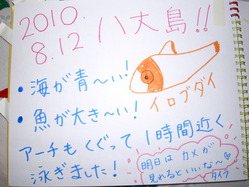 2010.
8.12 八大島!!
・海が青〜い!
・魚が大き〜い!
イロブダイ
アーチもくぐって1時間近く
泳ぎました!
明日は カメが
見れるといいな〜♡
タイプ